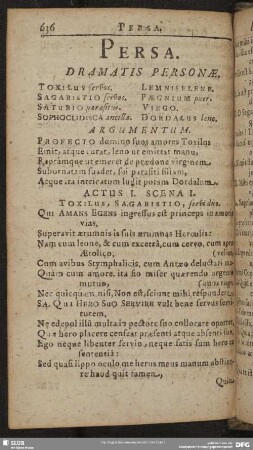 636 PERSA.
PERSA.
DRAMATIS PERSONÆ.
TOXILUS servus. LEMNISELENE.
SAGARISTIO servus. PÆGNIUM puer.
SATURIO parasitus. VIRGO.
SOPHOCLIDISCA ancilla. DORDALUS leno.
ARGUMENTUM.
PROFECTO domino suos amores Toxilus
Emit, atque curat, leno ut emittat manu,
Raptamque ut emeret de prædone virginem,
Subornata suadet, sui parasiti filiam,
Atque ita intricatum ludit potans Dordalum.
ACTUS I. SCENA I.
TOXILUS, SAGARISTIO, servi duo.
QUI AMANS EGENS ingressus est princeps in amoris
vias,
Superavit ærumnis is suis ærumnas Herculis:
Nam cum leone, & cum excetra, cum cervo, cum apro
Ætolico,
Cum avibus Stymphalicis, cum Antæo deluctari
Quàm cum amore. ita fio miser quærendo argento
mutuo,
Nec quicquam nisi, Non est, sciunt mihi respondere
SA. QUI HERO SUO SERVIRE vult bene servus servi-
tutem,
Næ edepol illû multa in pectore suo collocare oportet,
Que hero placere censeat præsenti atque absenti suo.
Ego neque libenter servio, neque satis sum hero ex
sententiâ:
Sed quasi lippo oculo me herus meus manum abstine-
re haud quit tamen,